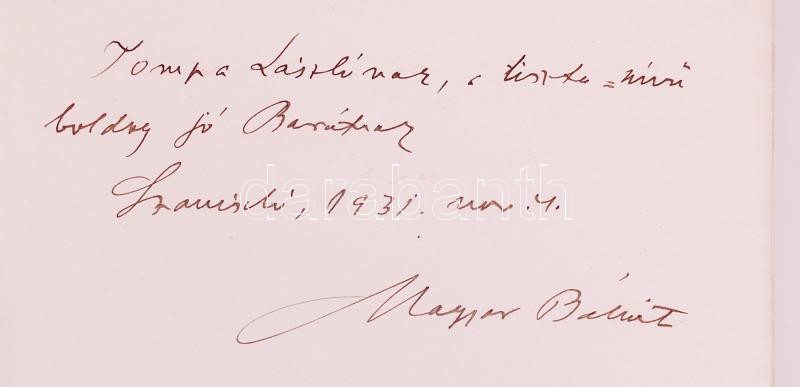 Tompa Lászlónak, a tiszta-szívű
boldog jó Barátnak
Szaniszló, 1931. nov. 4.
Magyar Bálint
darabanth